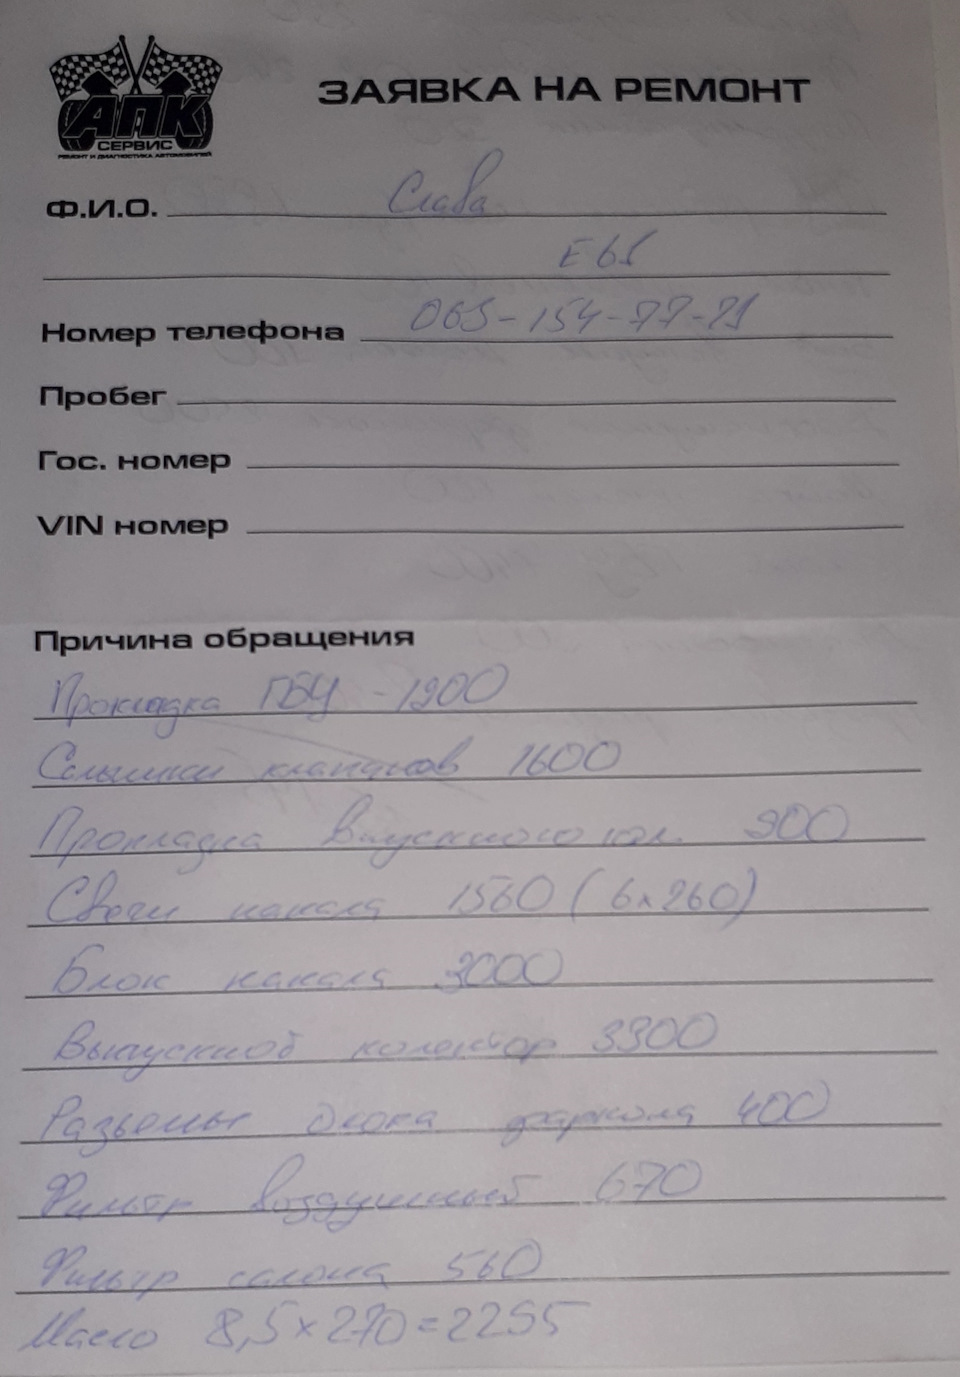 АПК
СЕРВИС
РЕМОНТ И ДИАГНОСТИКА АВТОМОБИЛЕЙ
ЗАЯВКА НА РЕМОНТ
Ф.И.О. Слава
E61
Номер телефона 063-154-77-21
Пробег
Гос. номер
VIN номер
Причина обращения
Прокладка ГБЦ - 1900
Сальники клапанов 1600
Прокладка впускного кол. 900
Свечи накала 1560 (6x260)
Блок накала 3000
Выпускной колектор 3300
Разьемы блока 400
Фильтр воздушный 670
Фильтр салона 560
Масло 8,5x270=2295